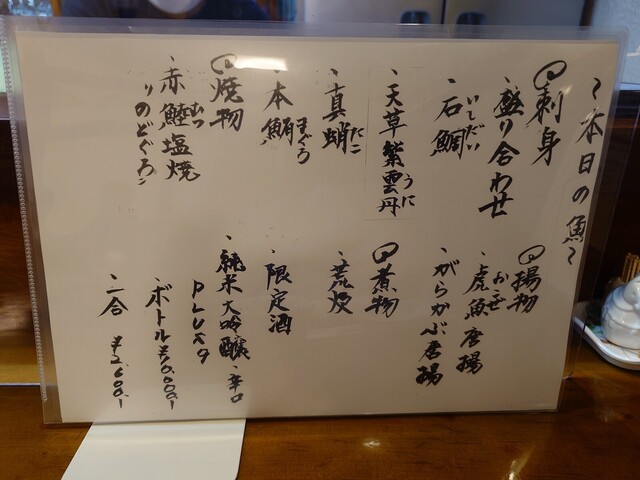 〜本日の魚〜
◎刺身
・盛り合わせ
・石鯛 いしだい
・天草紫雲丹 うに
・真蛸 たこ
・本鮪 まぐろ
◎焼物
・赤鯥塩焼 むつ
(のどぐろ)
◎揚物
・虎魚唐揚 おこぜ
・がらかぶ唐揚
◎煮物
・荒炊
・限定酒
・純米大吟醸・辛口
PLUS9
・ボトル¥10.000.-
・二合 ¥2.600.-